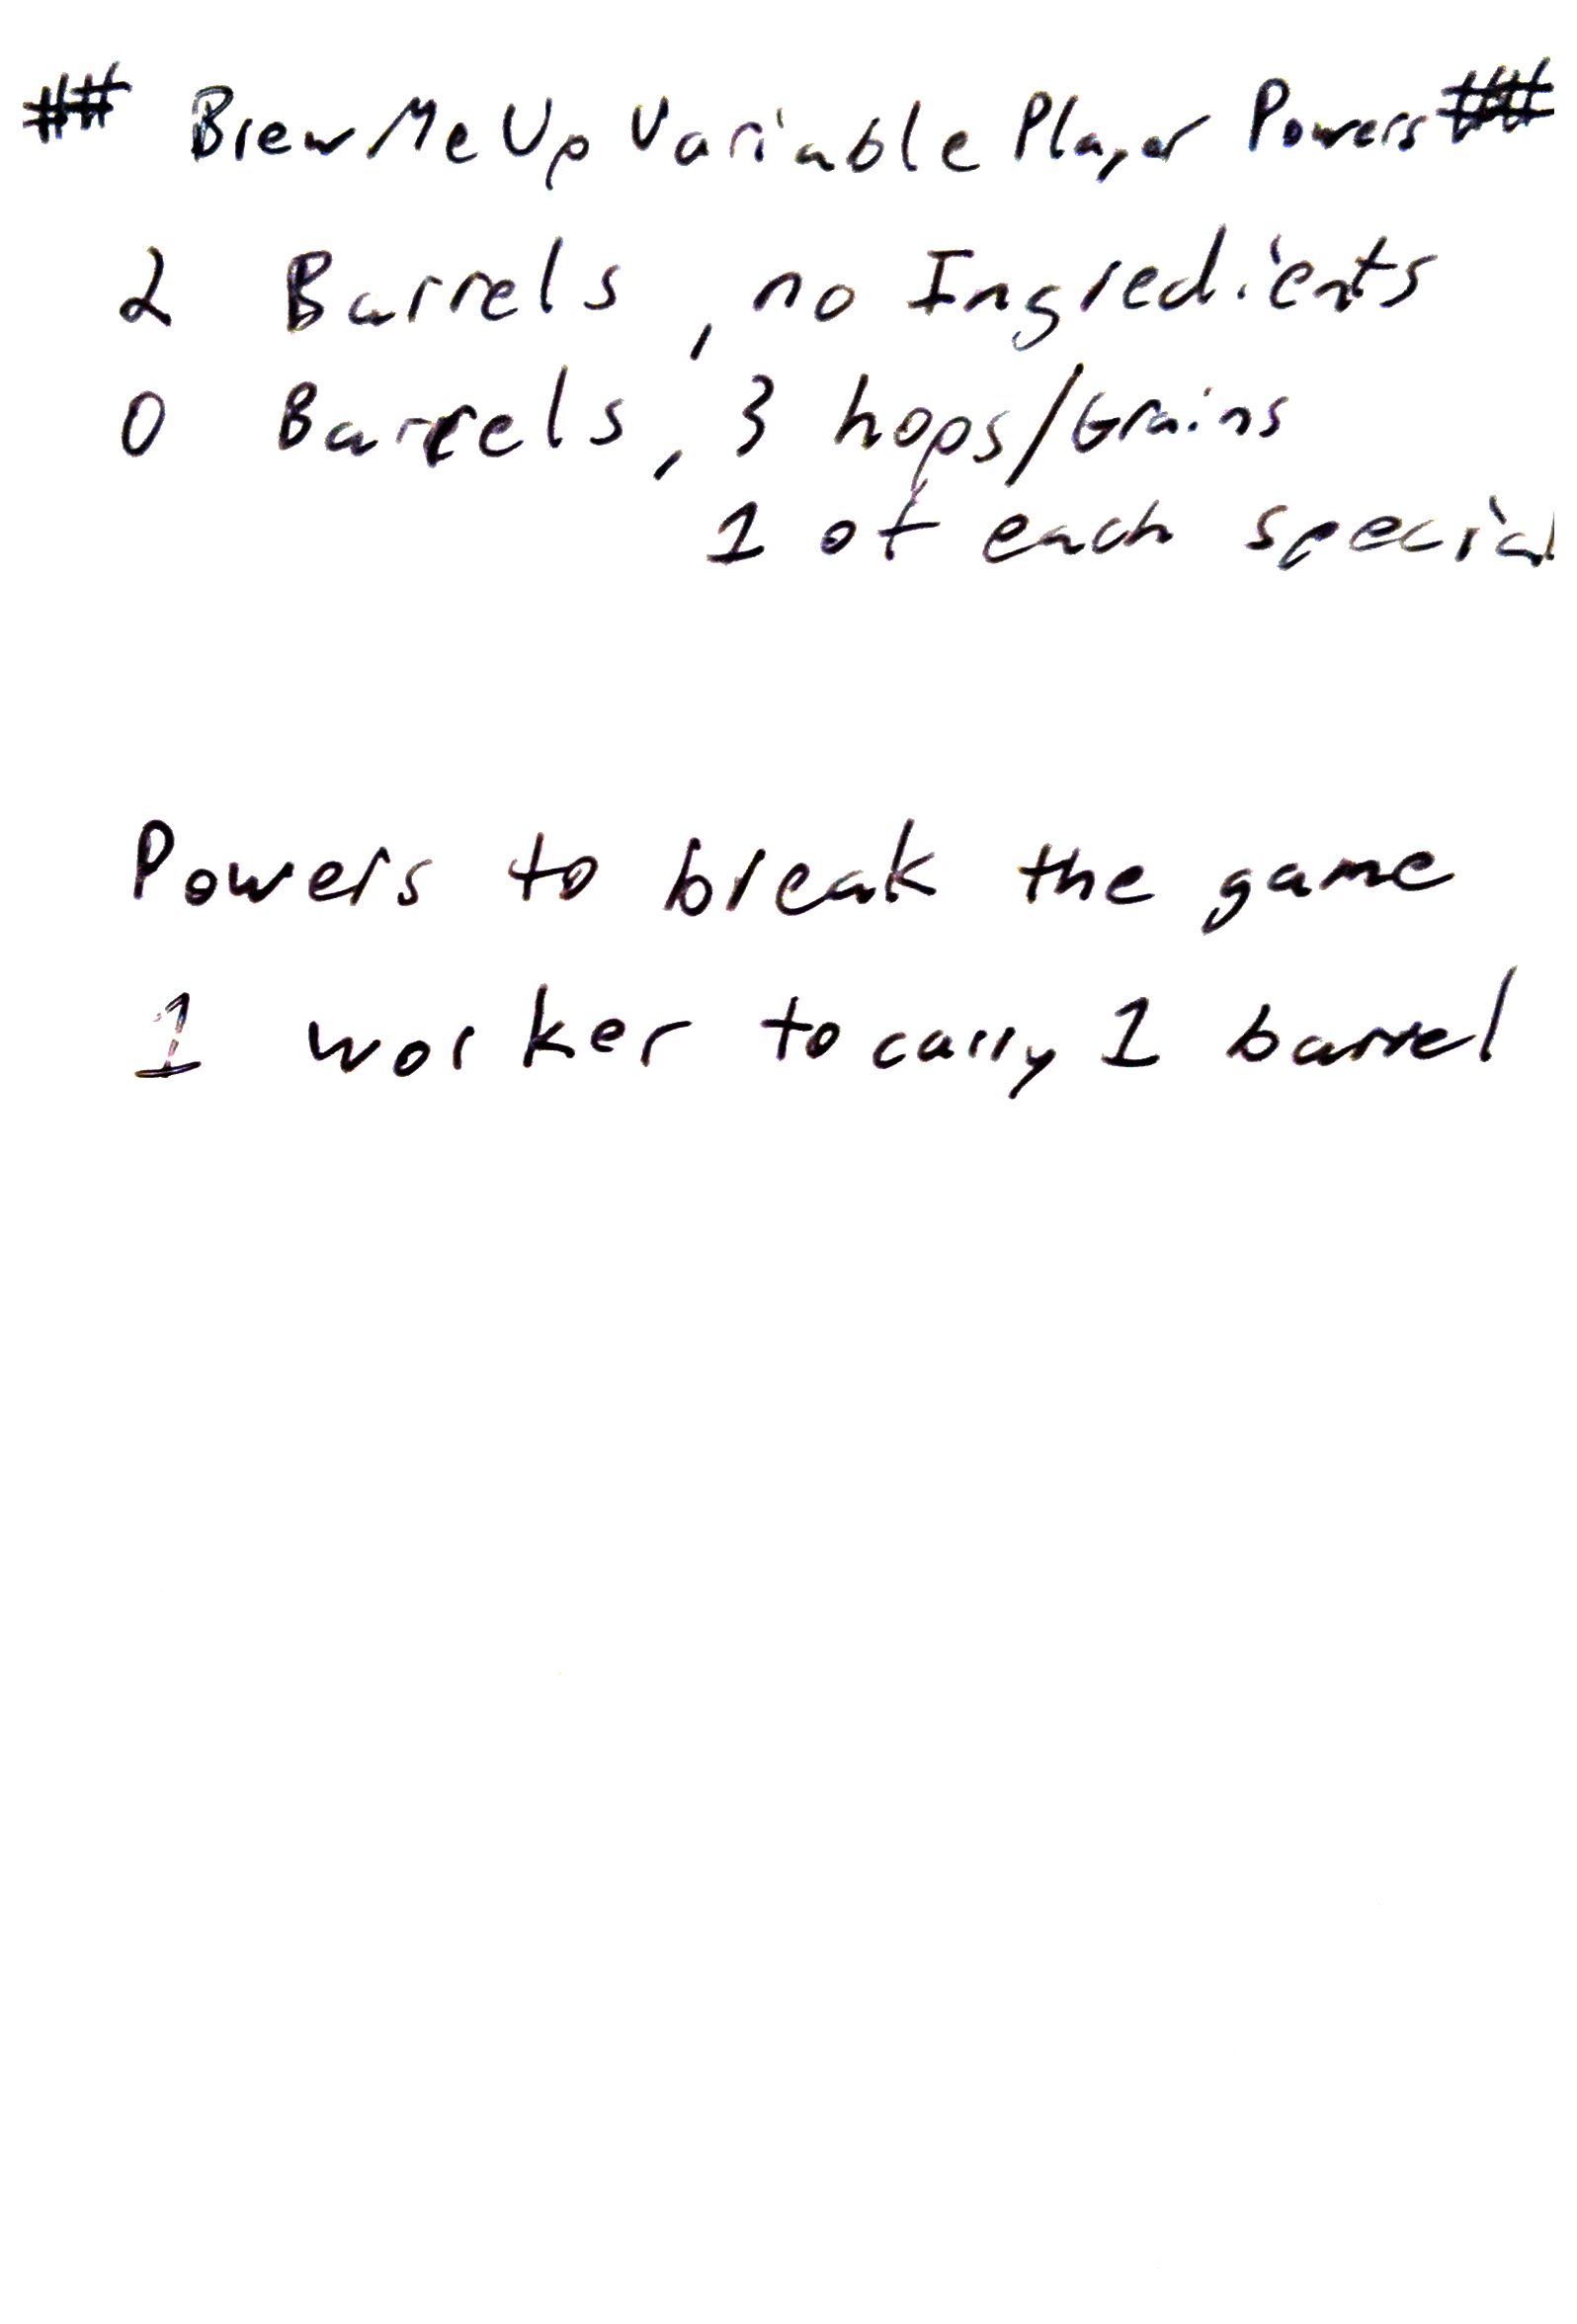 ## Brew Me Up Variable Player Powers ##
2 Barrels, no Ingredients
0 Barrels, 3 hops/Grains
1 of each special
Powers to break the game
1 worker to carry 1 barrel